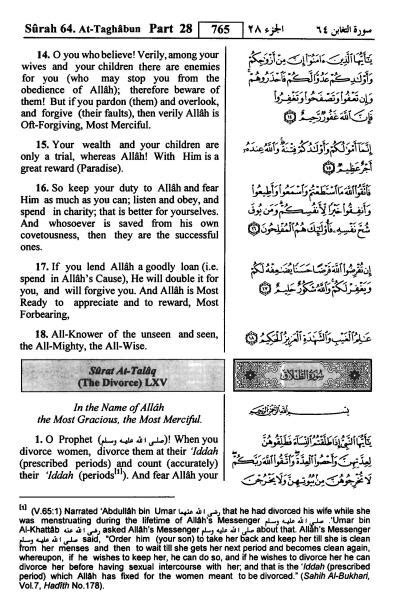 Sûrah 64. At-Taghâbun Part 28 765 الجزء ٢٨ سورة التغابن ٦٤
14. O you who believe! Verily, among your
wives and your children there are enemies
for you (who may stop you from the
obedience of Allâh); therefore beware of
them! But if you pardon (them) and overlook,
and forgive (their faults), then verily Allâh is
Oft-Forgiving, Most Merciful.
يَٰٓأَيُّهَا ٱلَّذِينَ ءَامَنُوٓا۟ إِنَّ مِنْ أَزْوَٰجِكُمْ
وَأَوْلَٰدِكُمْ عَدُوًّا لَّكُمْ فَٱحْذَرُوهُمْ ۚ
وَإِن تَعْفُوا۟ وَتَصْفَحُوا۟ وَتَغْفِرُوا۟
فَإِنَّ ٱللَّهَ غَفُورٌ رَّحِيمٌ ١٤
15. Your wealth and your children are
only a trial, whereas Allâh! With Him is a
great reward (Paradise).
إِنَّمَآ أَمْوَٰلُكُمْ وَأَوْلَٰدُكُمْ فِتْنَةٌ ۚ وَٱللَّهُ عِندَهُۥٓ
أَجْرٌ عَظِيمٌ ١٥
16. So keep your duty to Allâh and fear
Him as much as you can; listen and obey, and
spend in charity; that is better for yourselves.
And whosoever is saved from his own
covetousness, then they are the successful
ones.
فَٱتَّقُوا۟ ٱللَّهَ مَا ٱسْتَطَعْتُمْ وَٱسْمَعُوا۟ وَأَطِيعُوا۟
وَأَنفِقُوا۟ خَيْرًا لِّأَنفُسِكُمْ ۗ وَمَن يُوقَ
شُحَّ نَفْسِهِۦ فَأُو۟لَٰٓئِكَ هُمُ ٱلْمُفْلِحُونَ ١٦
17. If you lend Allâh a goodly loan (i.e.
spend in Allâh's Cause), He will double it for
you, and will forgive you. And Allâh is Most
Ready to appreciate and to reward, Most
Forbearing,
إِن تُقْرِضُوا۟ ٱللَّهَ قَرْضًا حَسَنًا يُضَٰعِفْهُ لَكُمْ
وَيَغْفِرْ لَكُمْ ۚ وَٱللَّهُ شَكُورٌ حَلِيمٌ ١٧
18. All-Knower of the unseen and seen,
the All-Mighty, the All-Wise.
عَٰلِمُ ٱلْغَيْبِ وَٱلشَّهَٰدَةِ ٱلْعَزِيزُ ٱلْحَكِيمُ ١٨
Sûrat At-Talâq
(The Divorce) LXV
سُورَةُ الطَّلَاقِ
In the Name of Allâh
the Most Gracious, the Most Merciful.
بِسْمِ ٱللَّهِ ٱلرَّحْمَٰنِ ٱلرَّحِيمِ
1. O Prophet (صلى الله عليه وسلم)! When you
divorce women, divorce them at their 'Iddah
(prescribed periods) and count (accurately)
their 'Iddah (periods[1]). And fear Allâh your
يَٰٓأَيُّهَا ٱلنَّبِىُّ إِذَا طَلَّقْتُمُ ٱلنِّسَآءَ فَطَلِّقُوهُنَّ
لِعِدَّتِهِنَّ وَأَحْصُوا۟ ٱلْعِدَّةَ ۖ وَٱتَّقُوا۟ ٱللَّهَ رَبَّكُمْ ۖ
لَا تُخْرِجُوهُنَّ مِنۢ بُيُوتِهِنَّ وَلَا يَخْرُجْنَ
[1] (V.65:1) Narrated 'Abdullâh bin 'Umar رضى الله عنهما that he had divorced his wife while she
was menstruating during the lifetime of Allâh's Messenger صلى الله عليه وسلم. 'Umar bin
Al-Khattâb رضى الله عنه asked Allâh's Messenger صلى الله عليه وسلم about that. Allâh's Messenger
صلى الله عليه وسلم said, "Order him (your son) to take her back and keep her till she is clean
from her menses and then to wait till she gets her next period and becomes clean again,
whereupon, if he wishes to keep her, he can do so, and if he wishes to divorce her he can
divorce her before having sexual intercourse with her; and that is the 'Iddah (prescribed
period) which Allâh has fixed for the women meant to be divorced." (Sahih Al-Bukhari,
Vol.7, Hadîth No.178).